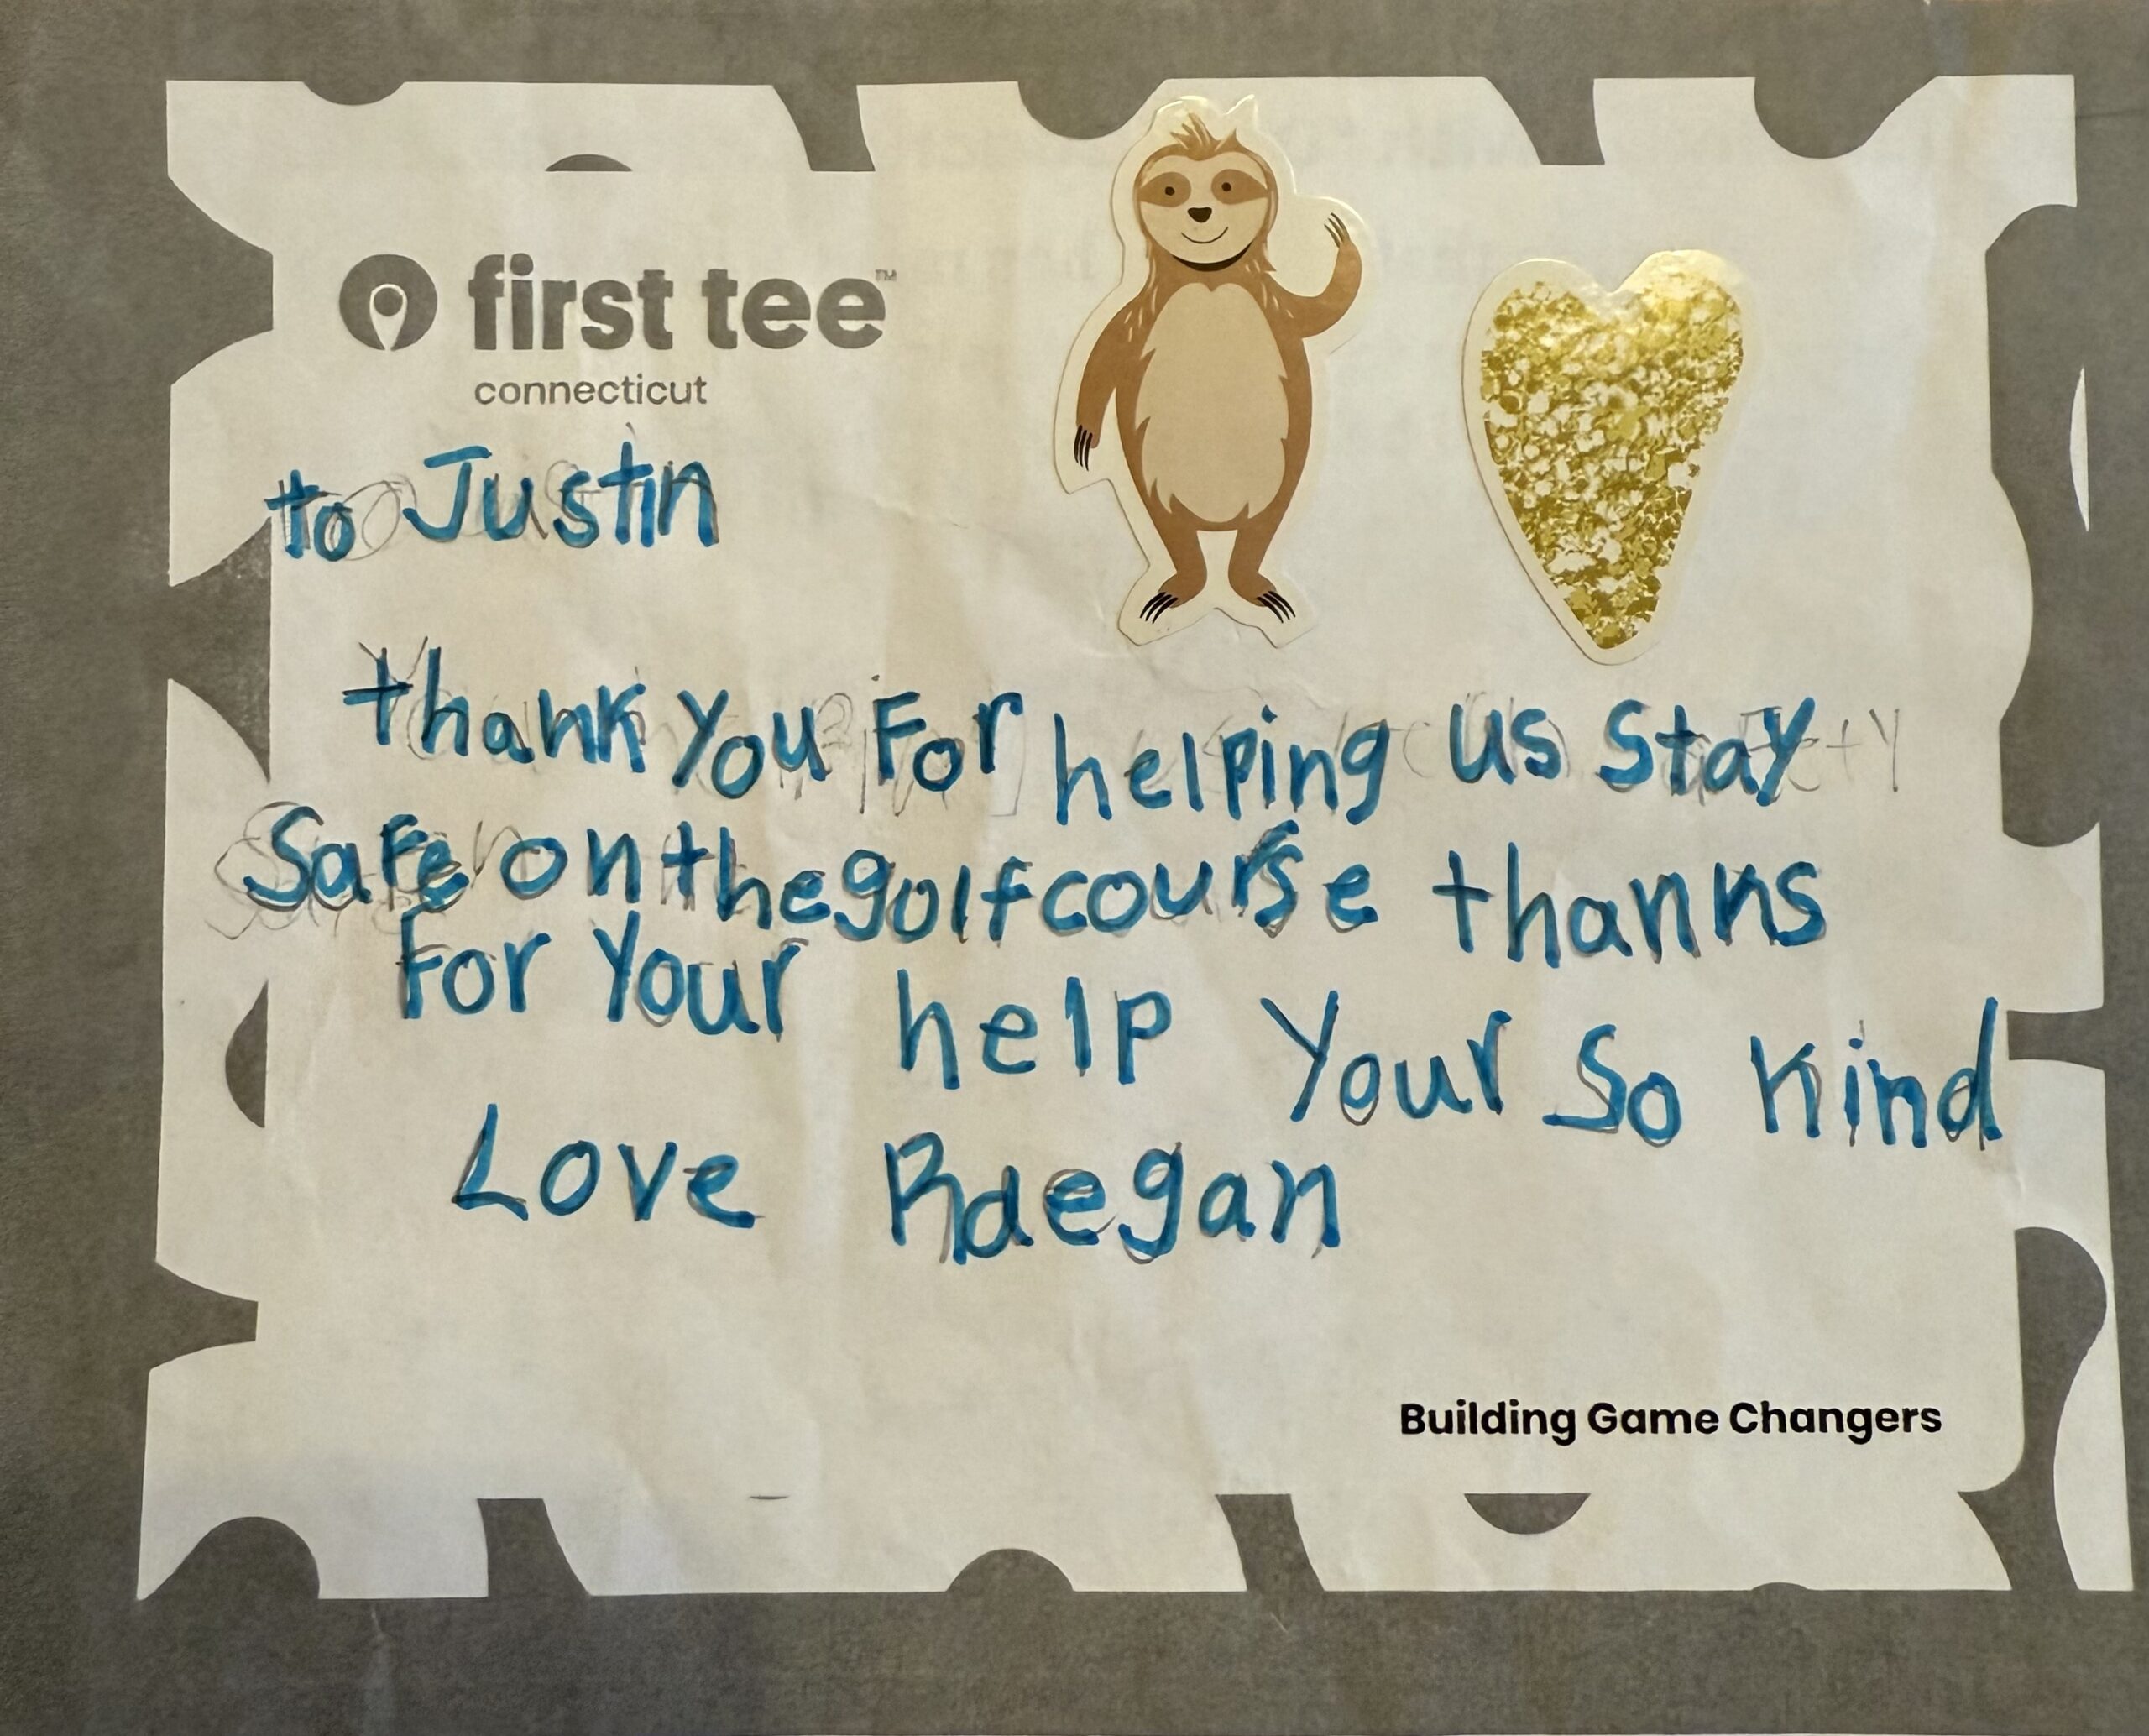 first tee™
connecticut
to Justin
thank you For helping us stay
Safe on the golf course thanks
For Your help Your So kind
Love Raegan
Building Game Changers